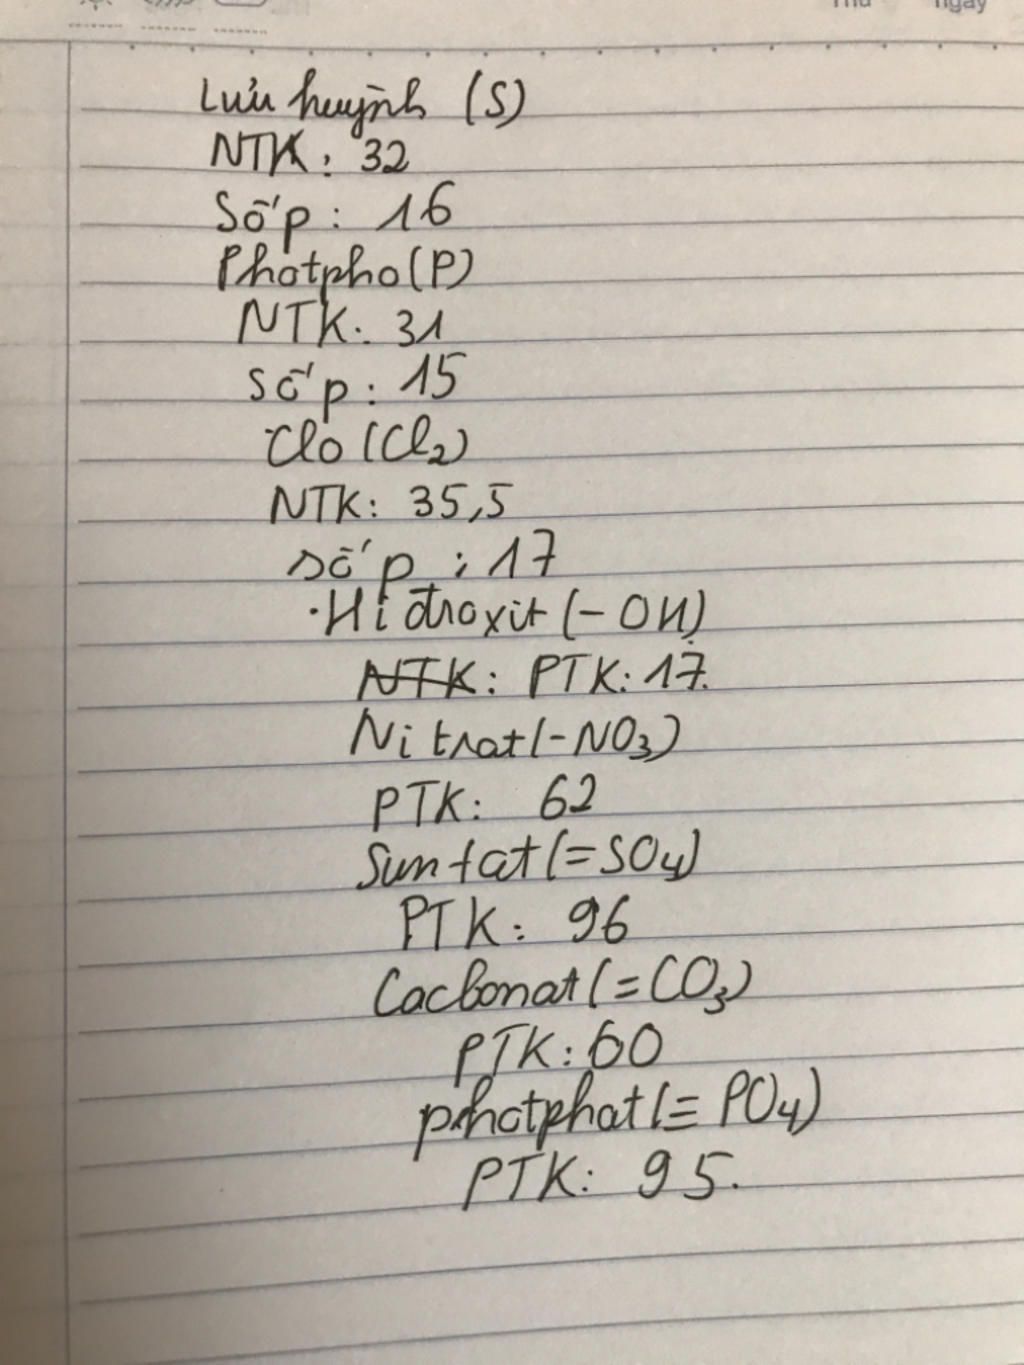 Thứ ngày
Lưu huỳnh (S)
NTK: 32
Số p: 16
Photpho (P)
NTK: 31
Số p: 15
Clo (Cl₂)
NTK: 35,5
số p : 17
·Hiđroxit (- OH)
NTK: PTK: 17.
Nitrat (-NO₃)
PTK: 62
Sunfat (=SO₄)
PTK: 96
Cacbonat (=CO₃)
PTK: 60
photphat (≡ PO₄)
PTK: 95.